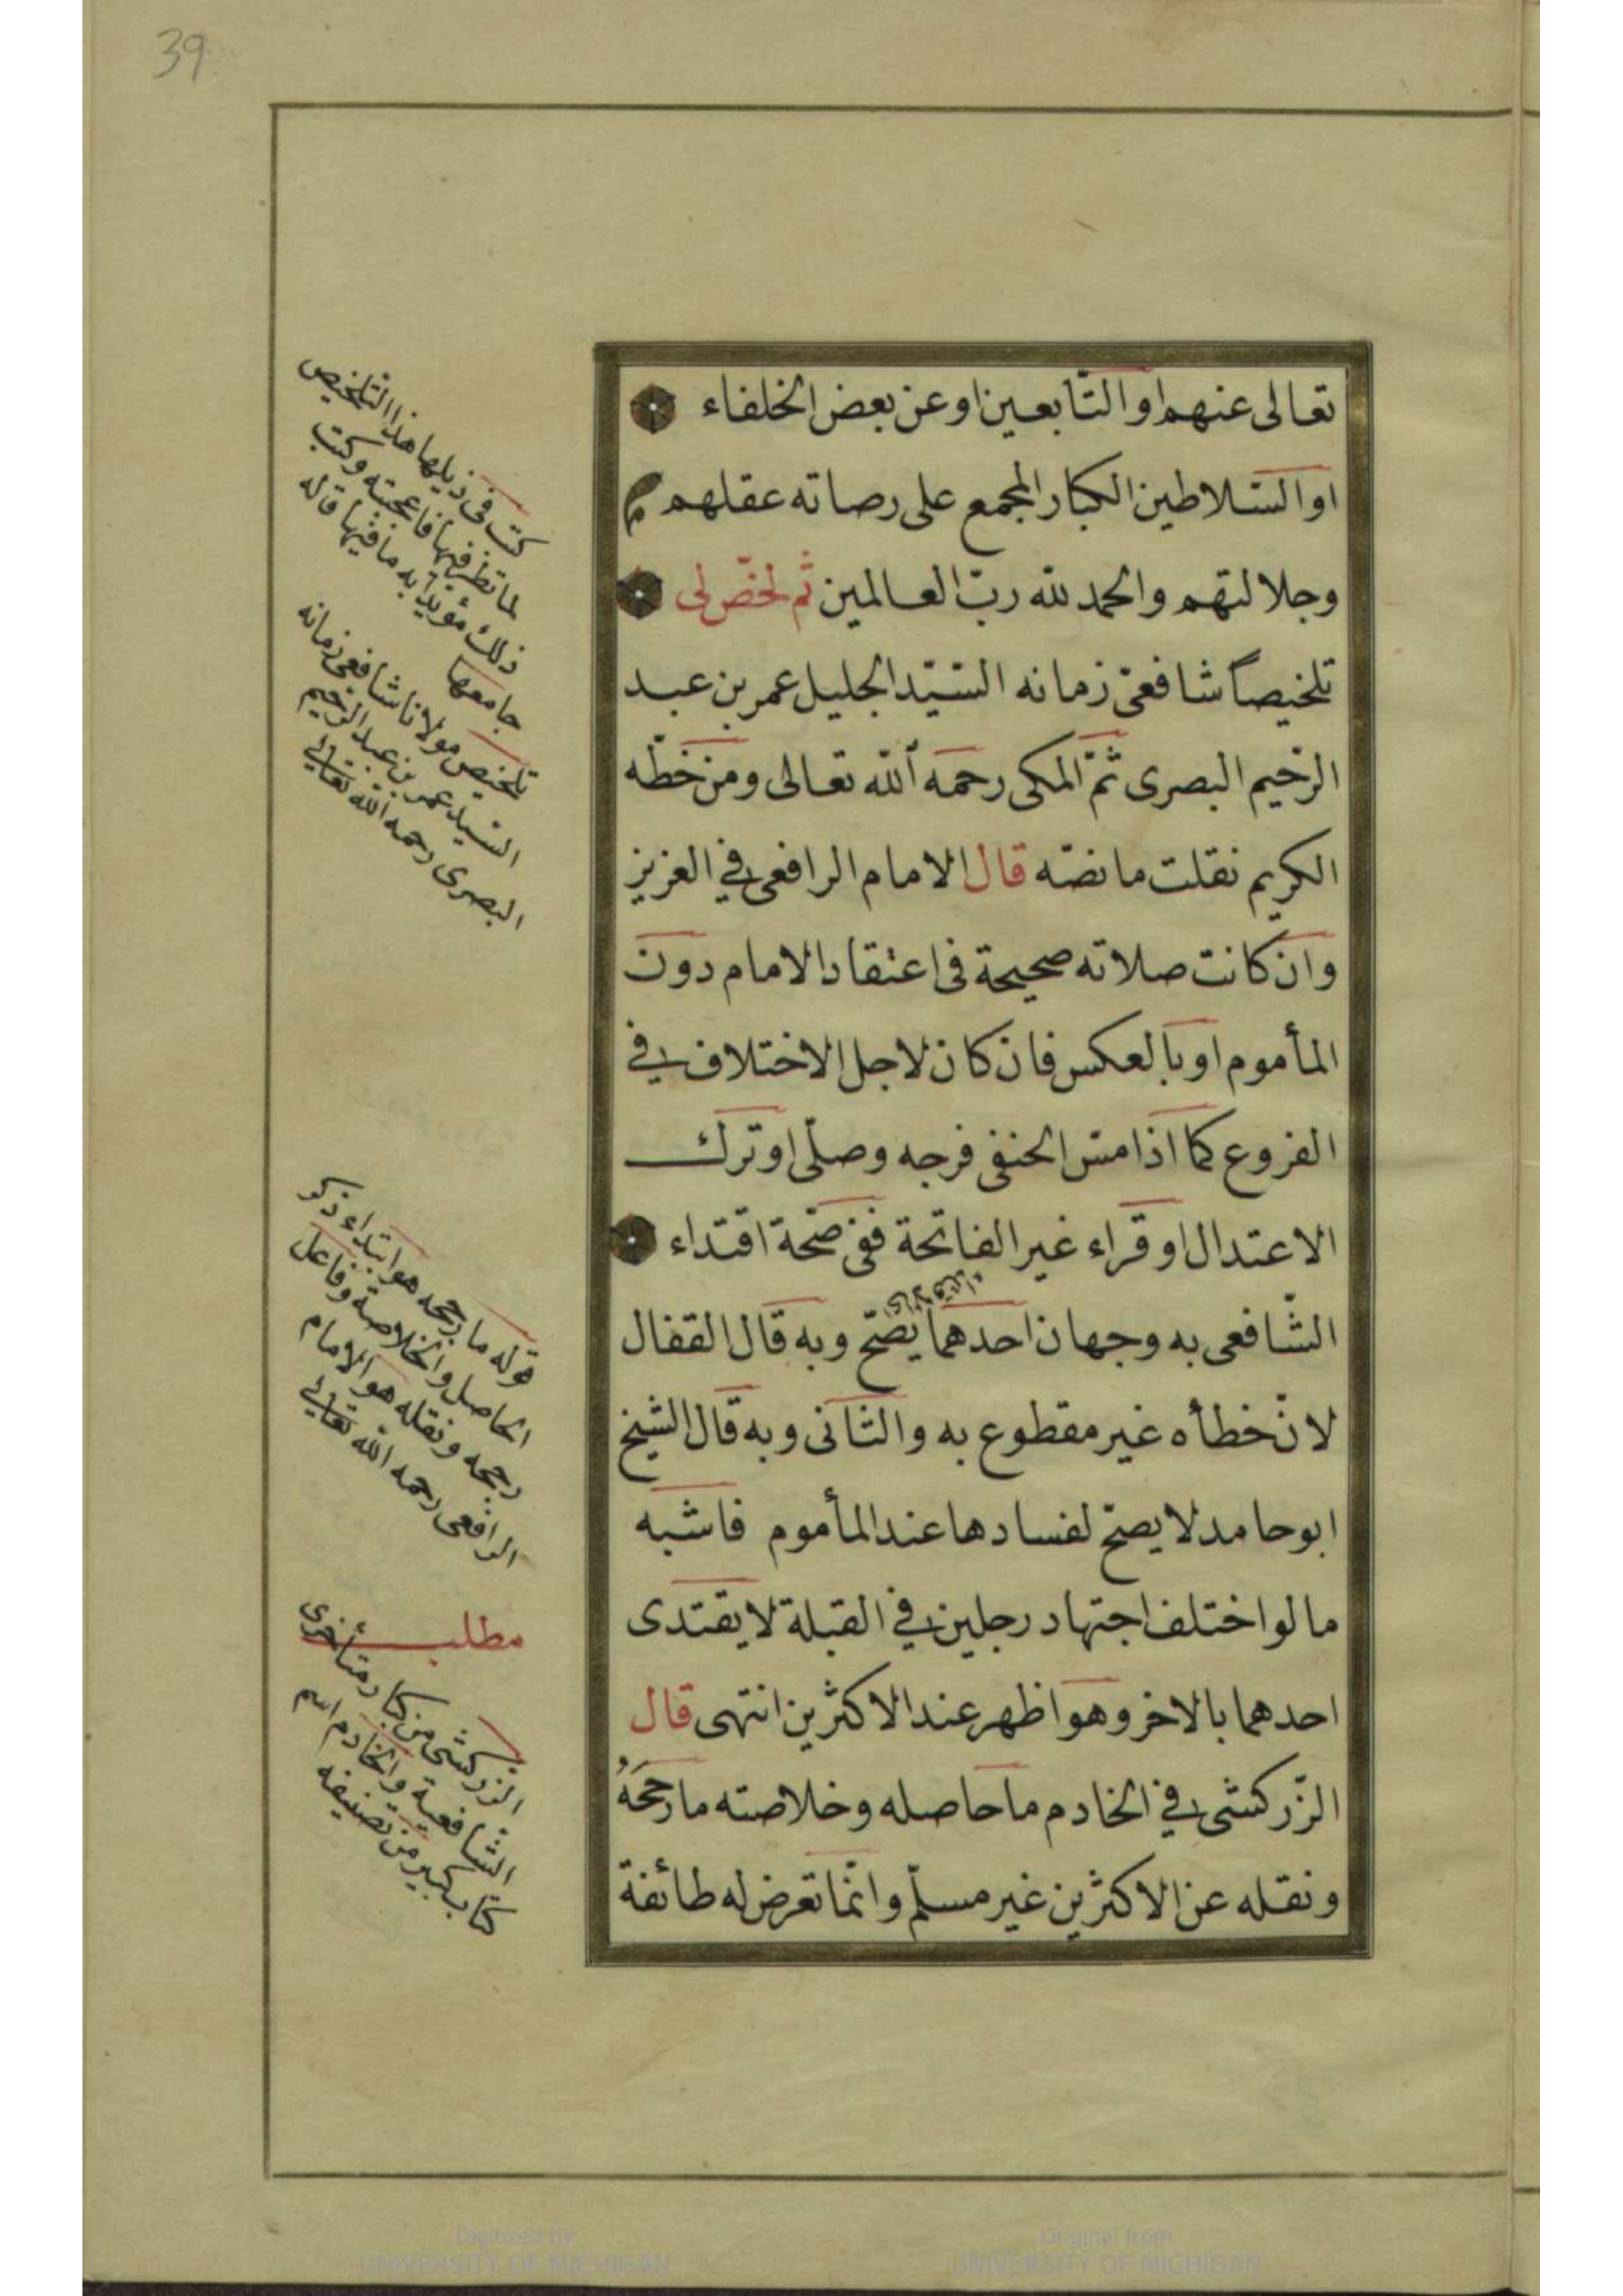 39
تعالى عنهم او التّابعين او عن بعض الخلفاء
او السّلاطين الكبار المجمع على رصاته عقلهم
وجلالتهم والحمد لله ربّ العالمين ثم لخّص لى
تلخيصاً شافعىّ زمانه السّيّد الجليل عمر بن عبد
الرّحيم البصرى ثمّ المكى رحمه الله تعالى ومن خطّه
الكريم نقلت ما نصّه قال الامام الرافعى في العزيز
وان كانت صلاته صحيحة فى اعتقاد الامام دون
المأموم او بالعكس فان كان لاجل الاختلاف في
الفروع كما اذا مسّ الحنفى فرجه وصلّى او ترك
الاعتدال او قراء غير الفاتحة ففى صحّة اقتداء
الشّافعى به وجهان احدهما يصّح وبه قال القفال
اى الاقتداء
لانّ خطأه غير مقطوع به والثّانى وبه قال الشيخ
ابو حامد لا يصحّ لفسادها عند المأموم فاشبه
ما لو اختلف اجتهاد رجلين في القبلة لا يقتدى
احدهما بالاخر وهو اظهر عند الاكثرين انتهى قال
الزّركشى في الخادم ما حاصله وخلاصته ما رجحَهُ
ونقله عن الاكثرين غير مسلّم وانّما تعرض له طائفة
كتب فى ذيلها هذا التلخيص
لما نظر فيها فاعجبته وكتب
ذلك مؤيدا به ما فيها قاله
جامعها
تلخيص مولانا شافعى زمانه
السّيد عمر بن عبد الرّحيم
البصرى رحمه الله تعالى
قوله ما رجحه هو ابتداء ذكر
الحاصل والخلاصة وفاعل
رجحه ونقله هو الامام
الرافعى رحمه الله تعالى
مطلب
الزركشى من كبار متأخرى
الشّافعية والخادم اسم
كتاب كبير من تصنيفه
Digitized by
UNIVERSITY OF MICHIGAN
Original from
UNIVERSITY OF MICHIGAN